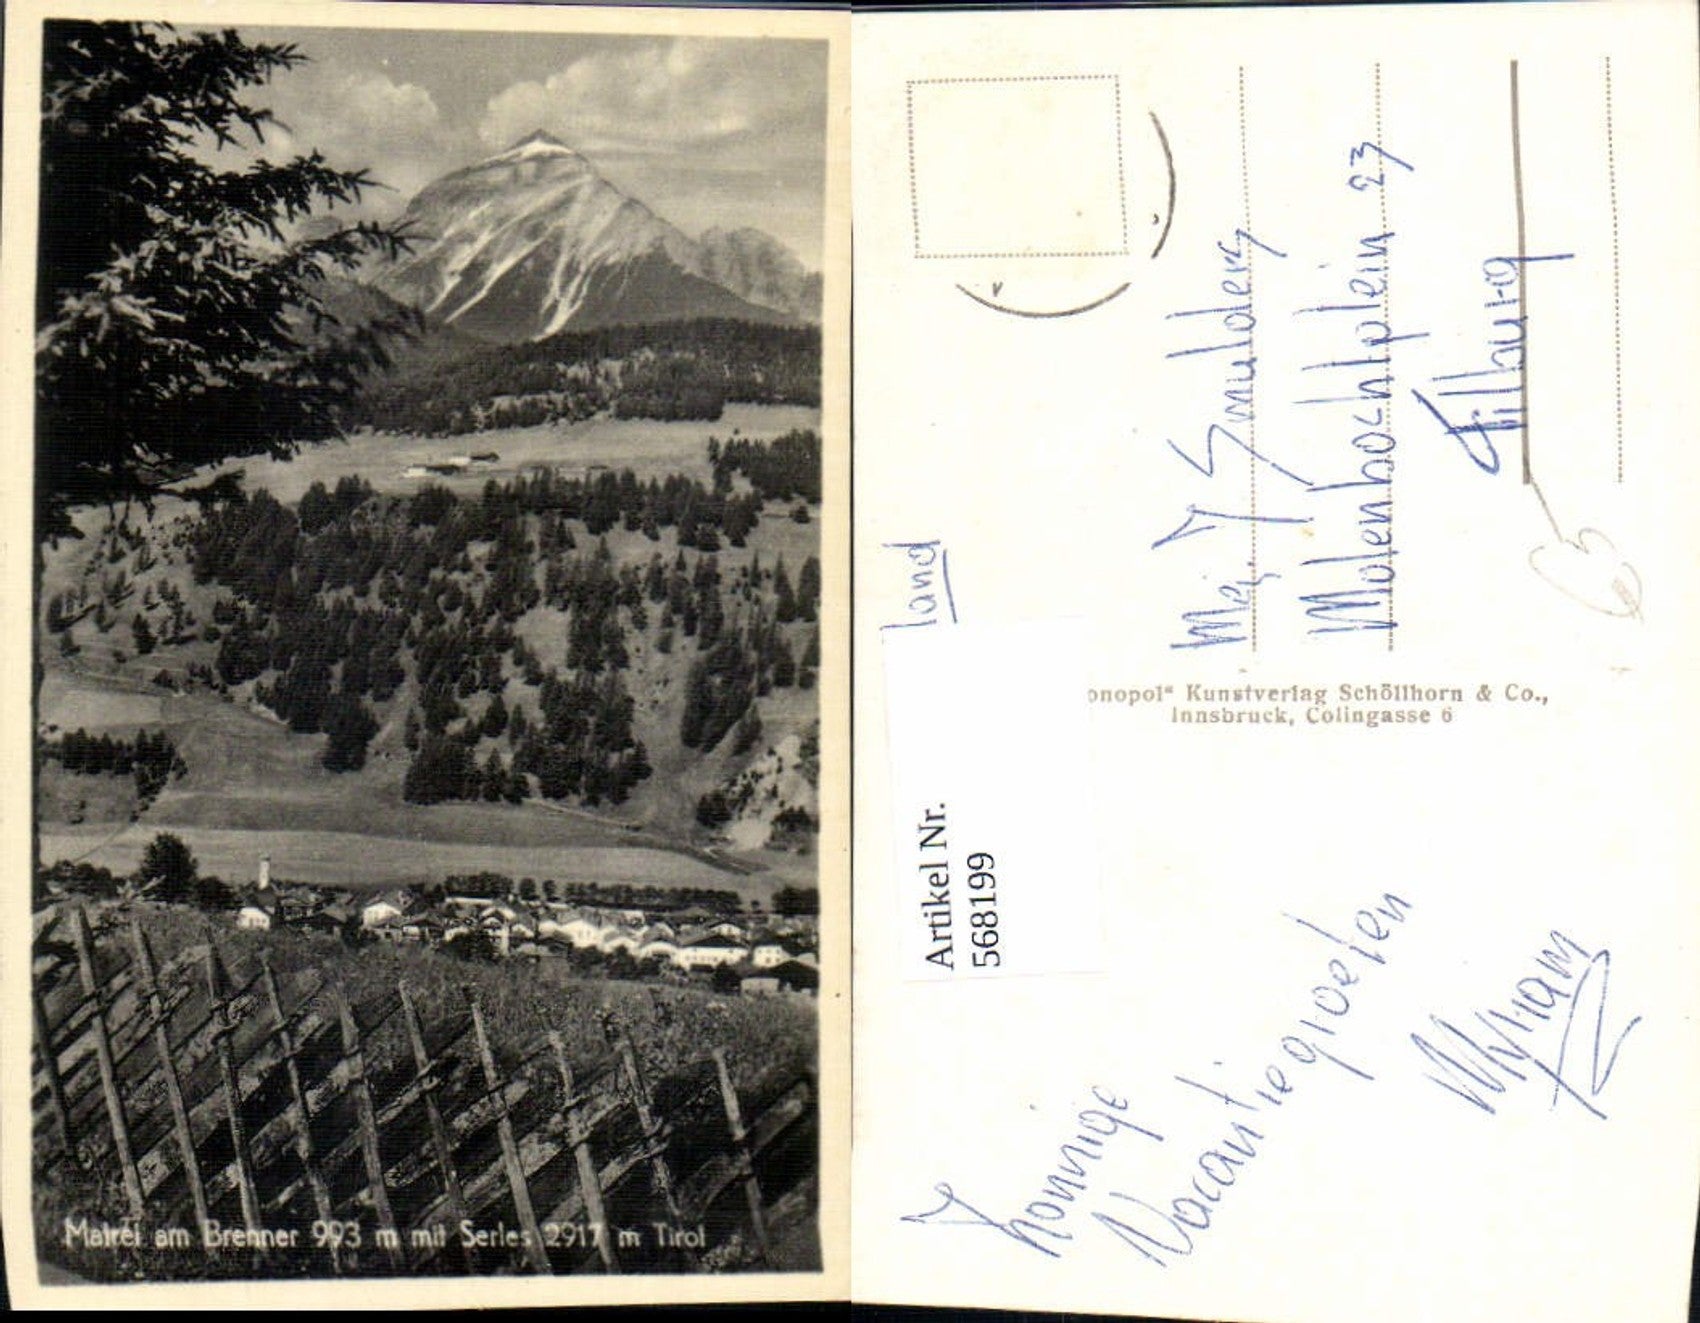 Matrei am Brenner 993 m mit Serles 2917 m Tirol
land
Mej. J Smulders
Molenbochtplein 23
Tilburg
onopol“ Kunstverlag Schöllhorn & Co.,
Innsbruck, Colingasse 6
Artikel Nr.
568199
Zonnige
Vacantiegroeten
Myriam